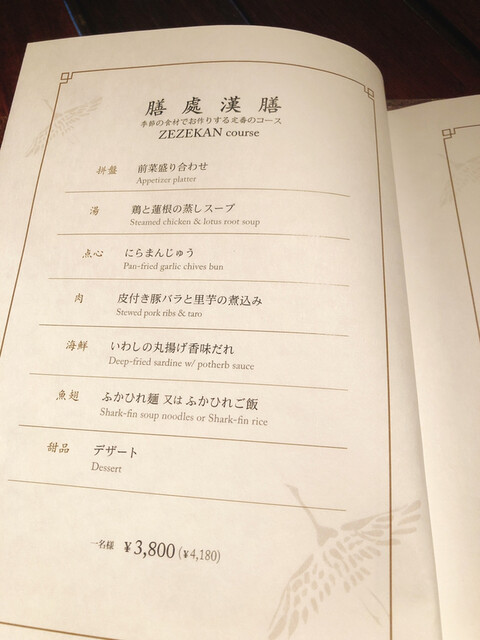 膳處漢膳
季節の食材でお作りする定番のコース
ZEZEKAN course
拼盤 前菜盛り合わせ
Appetizer platter
湯 鶏と蓮根の蒸しスープ
Steamed chicken & lotus root soup
点心 にらまんじゅう
Pan-fried garlic chives bun
肉 皮付き豚バラと里芋の煮込み
Stewed pork ribs & taro
海鮮 いわしの丸揚げ香味だれ
Deep-fried sardine w/ potherb sauce
魚翅 ふかひれ麺 又は ふかひれご飯
Shark-fin soup noodles or Shark-fin rice
甜品 デザート
Dessert
一名様 ¥3,800 (¥4,180)